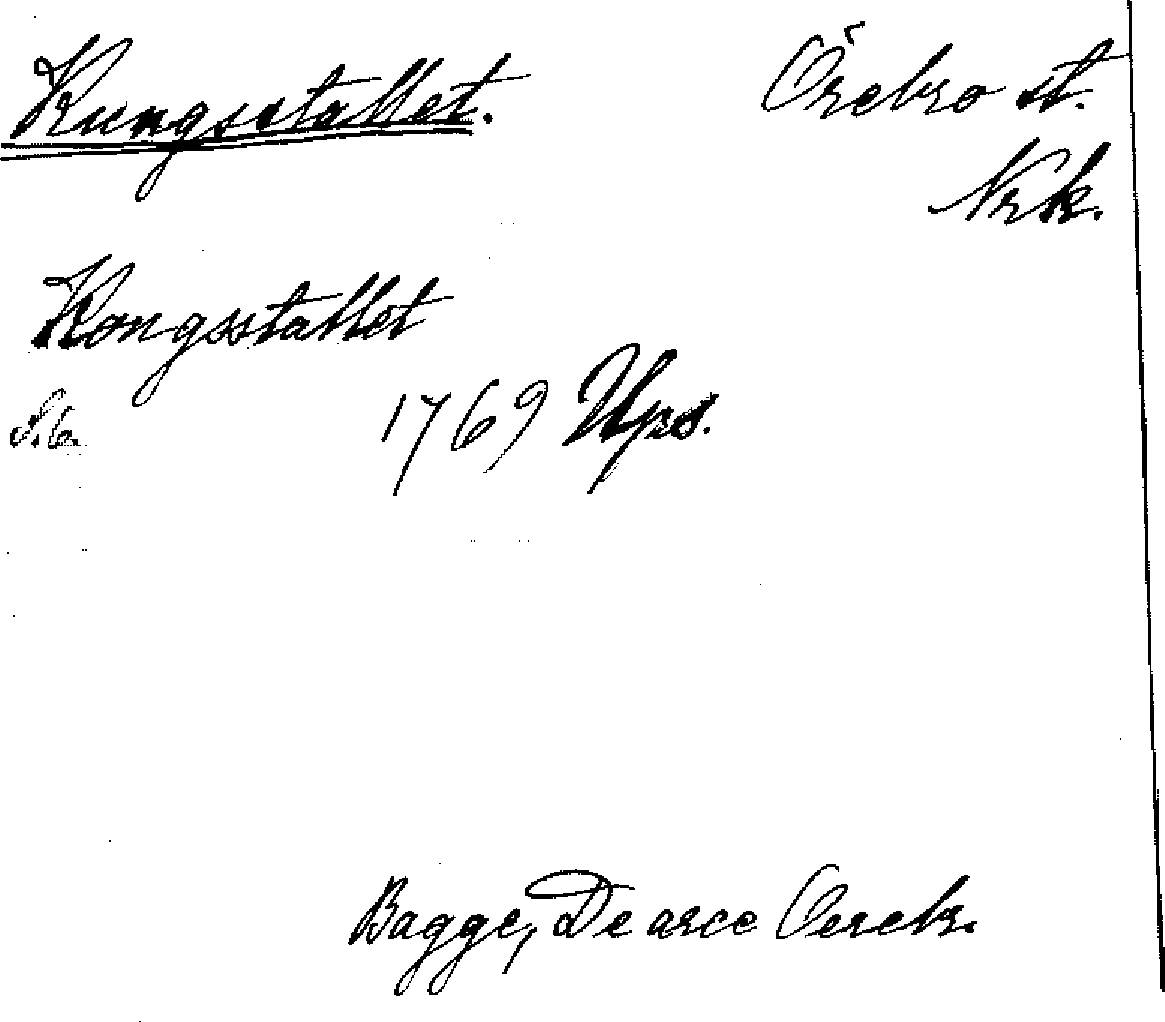 Kungsstallet. Örebro st.
Nrk.
Kongsstallet
S.6. 1769 Ups.
Bagge, De arce Oerebr.